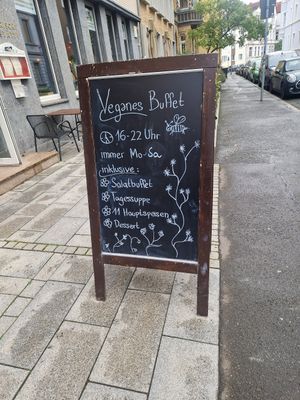 Veganes Buffet
16-22 Uhr
immer Mo-Sa
inklusive:
Salatbuffet
Tagessuppe
11 Hauptspeisen
Dessert